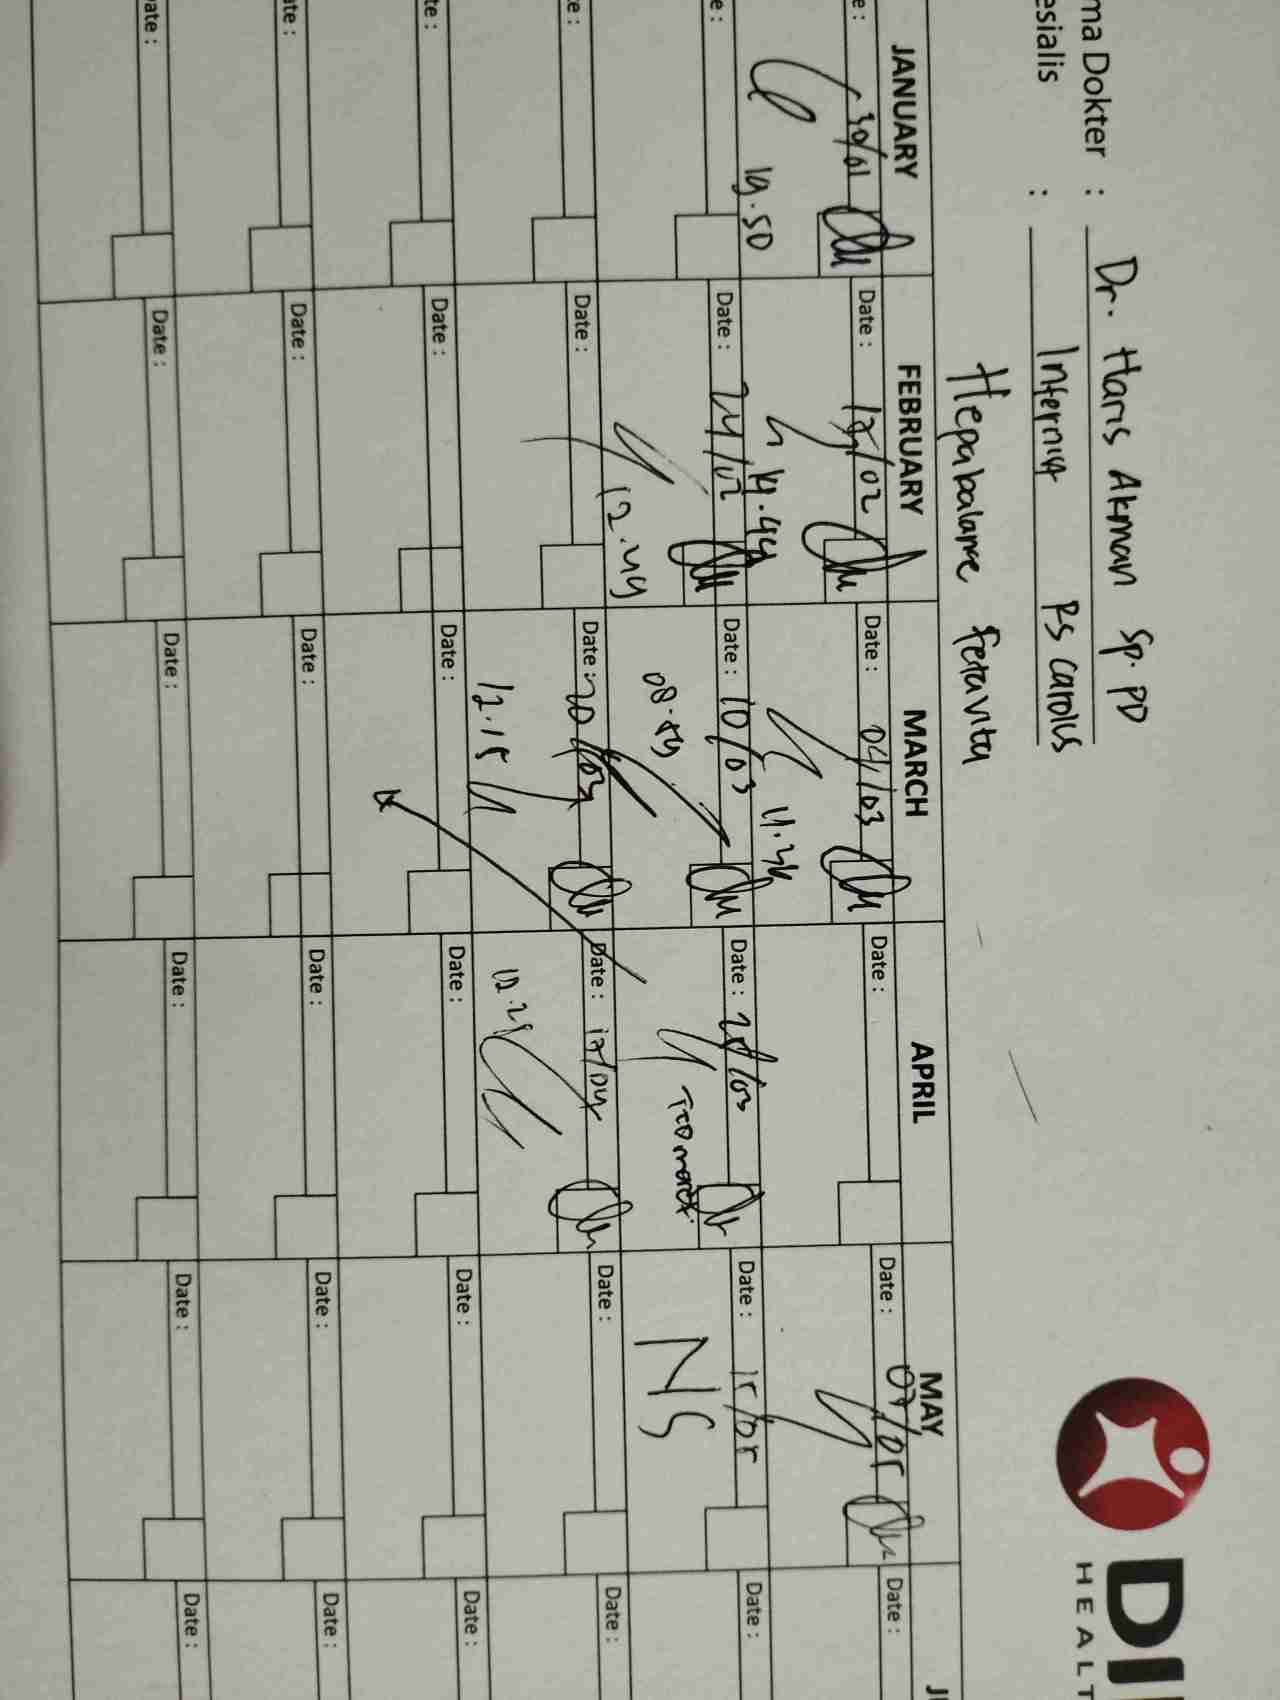 ma Dokter : Dr. Haris Akman Sp.PD
esialis : Internis RS Carolus
Hepabalance Feravita
DI
HEALT
JANUARY FEBRUARY MARCH APRIL MAY
e : 30/01 Date : 17/02 Date : 04/03 Date : Date : 07/05 Date :
19.50 19.44 11.36
e : Date : 24/02 Date : 10/03 Date : 28/03 Date : 15/05 Date :
12.49 08.49 NS
e : Date : Date : 20/03 Date : 17/04 Date : Date :
12.15
te : Date : Date : Date : Date : Date :
ate : Date : Date : Date : Date : Date :
Date : Date : Date : Date : Date : Date :